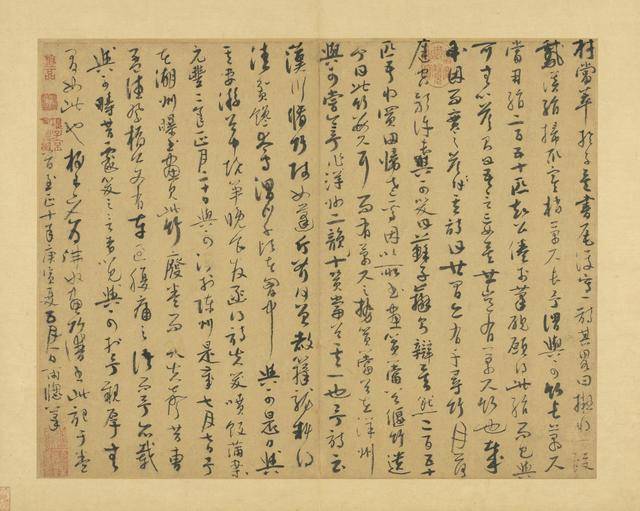 材當萃於子矣書尾復寫一詩其略曰擬將一段
鵝溪絹掃取寒梢萬尺長予謂與可竹長萬尺
當用絹二百五十匹知公倦於筆硯願得此絹而已與
可無以答則曰吾言妄矣世豈有萬尺竹也哉
余因而實之答其詩曰世間亦有千尋竹月落
庭空影許長與可笑曰蘇子辯則辯矣然二百五十
匹吾將買田歸老焉因以所畫篔簹谷偃竹遺
予曰此竹數尺耳而有萬尺之勢篔簹谷在洋州
與可嘗令予作洋州三十詠篔簹谷其一也予詩云
漢川修竹賤如蓬斤斧何曾赦籜龍料得
清貧饞太守渭濱千畝在胸中與可是日與
其妻游谷中燒筍晚食發函得詩失笑噴飯滿案
元豐二年正月二十日與可沒於陳州是歲七月七日予
在湖州曝書畫見此竹廢卷而哭失聲昔曹
孟德祭橋公文有車過腹痛之語而予亦載
與可疇昔戲笑之言者以見與可於予親厚無
間如此也
首至正十年庚寅夏五月一日